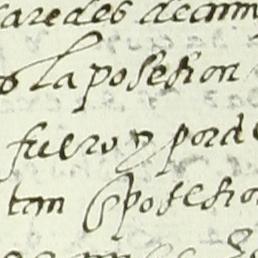 aredes decim
o la posesion
fuero y por d
tan posesio